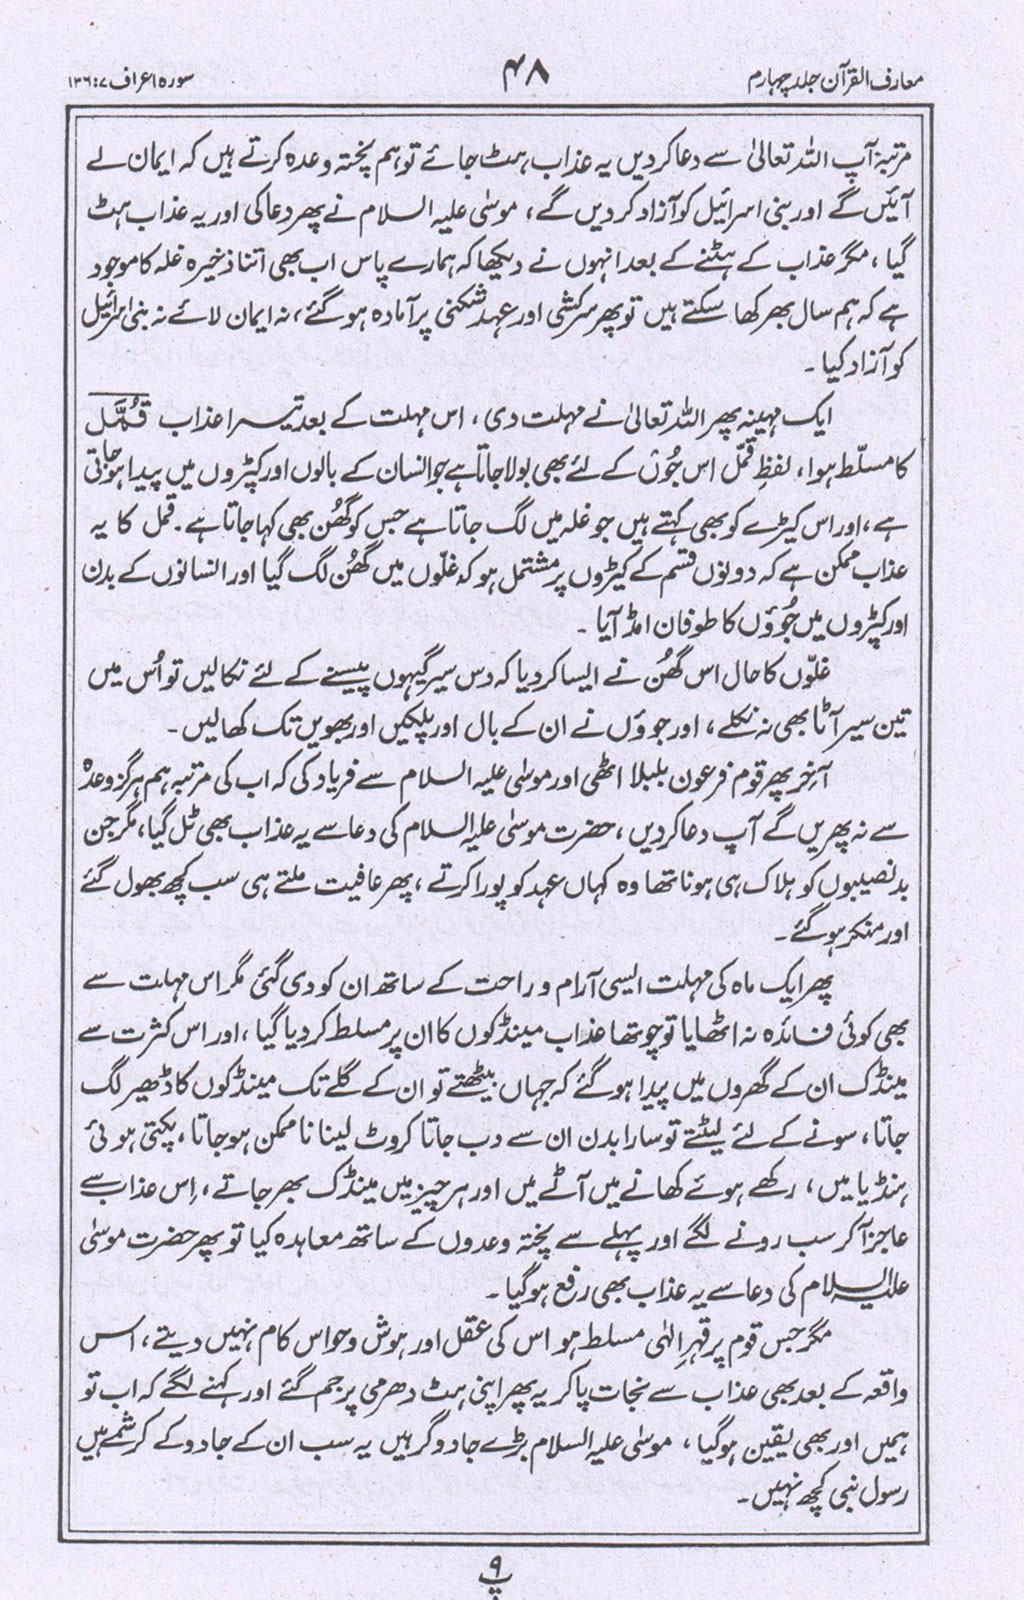 معارف القرآن جلد چہارم
۴۸
سورہ اعراف ۷:۱۳۶
مرتبہ آپ اللہ تعالیٰ سے دعا کردیں یہ عذاب ہٹ جائے تو ہم پختہ وعدہ کرتے ہیں کہ ایمان لے
آئیں گے اور بنی اسرائیل کو آزاد کردیں گے، موسٰی علیہ السلام نے پھر دعا کی اور یہ عذاب ہٹ
گیا، مگر عذاب کے ہٹنے کے بعد انہوں نے دیکھا کہ ہمارے پاس اب بھی اتنا ذخیرہ غلہ کا موجود
ہے کہ ہم سال بھر کھا سکتے ہیں تو پھر سرکشی اور عہد شکنی پر آمادہ ہوگئے، نہ ایمان لائے نہ بنی اسرائیل
کو آزاد کیا۔
ایک مہینہ پھر اللہ تعالیٰ نے مہلت دی، اس مہلت کے بعد تیسرا عذاب قُمَّل
کا مسلّط ہوا، لفظِ قمّل اس جُوں کے لئے بھی بولا جاتا ہے جو انسان کے بالوں اور کپڑوں میں پیدا ہوجاتی
ہے، اور اس کیڑے کو بھی کہتے ہیں جو غلہ میں لگ جاتا ہے جس کو گھُن بھی کہا جاتا ہے۔ قمل کا یہ
عذاب ممکن ہے کہ دونوں قسم کے کیڑوں پر مشتمل ہو کہ غلّوں میں گھُن لگ گیا اور انسانوں کے بدن
اور کپڑوں میں جُوؤں کا طوفان امڈ آیا۔
غلّوں کا حال اس گھُن نے ایسا کردیا کہ دس سیر گیہوں پیسنے کے لئے نکالیں تو اُس میں
تین سیر آٹا بھی نہ نکلے، اور جوؤں نے ان کے بال اور پلکیں اور بھویں تک کھالیں۔
آخر پھر قوم فرعون بلبلا اٹھی اور موسٰی علیہ السلام سے فریاد کی کہ اب کی مرتبہ ہم ہرگز وعدہ
سے نہ پھریں گے آپ دعا کردیں، حضرت موسٰی علیہ السلام کی دعا سے یہ عذاب بھی ٹل گیا، مگر جن
بدنصیبوں کو ہلاک ہی ہونا تھا وہ کہاں عہد کو پورا کرتے، پھر عافیت ملتے ہی سب کچھ بھول گئے
اور منکر ہوگئے۔
پھر ایک ماہ کی مہلت ایسی آرام و راحت کے ساتھ ان کو دی گئی مگر اس مہلت سے
بھی کوئی فائدہ نہ اٹھایا تو چوتھا عذاب مینڈکوں کا ان پر مسلط کردیا گیا، اور اس کثرت سے
مینڈک ان کے گھروں میں پیدا ہوگئے کہ جہاں بیٹھتے تو ان کے گلے تک مینڈکوں کا ڈھیر لگ
جاتا، سونے کے لئے لیٹتے تو سارا بدن ان سے دب جاتا کروٹ لینا ناممکن ہوجاتا، پکتی ہوئی
ہنڈیا میں، رکھے ہوئے کھانے میں آٹے میں اور ہر چیز میں مینڈک بھر جاتے، اِس عذاب سے
عاجز آکر سب رونے لگے اور پہلے سے پختہ وعدوں کے ساتھ معاہدہ کیا تو پھر حضرت موسٰی
علیہ السلام کی دعا سے یہ عذاب بھی رفع ہوگیا۔
مگر جس قوم پر قہرِ الٰہی مسلط ہو اس کی عقل اور ہوش و حواس کام نہیں دیتے، اس
واقعہ کے بعد بھی عذاب سے نجات پاکر یہ پھر اپنی ہٹ دھرمی پر جم گئے اور کہنے لگے کہ اب تو
ہمیں اور بھی یقین ہوگیا، موسٰی علیہ السلام بڑے جادوگر ہیں یہ سب ان کے جادو کے کرشمے ہیں
رسول نبی کچھ نہیں۔
پ ۹